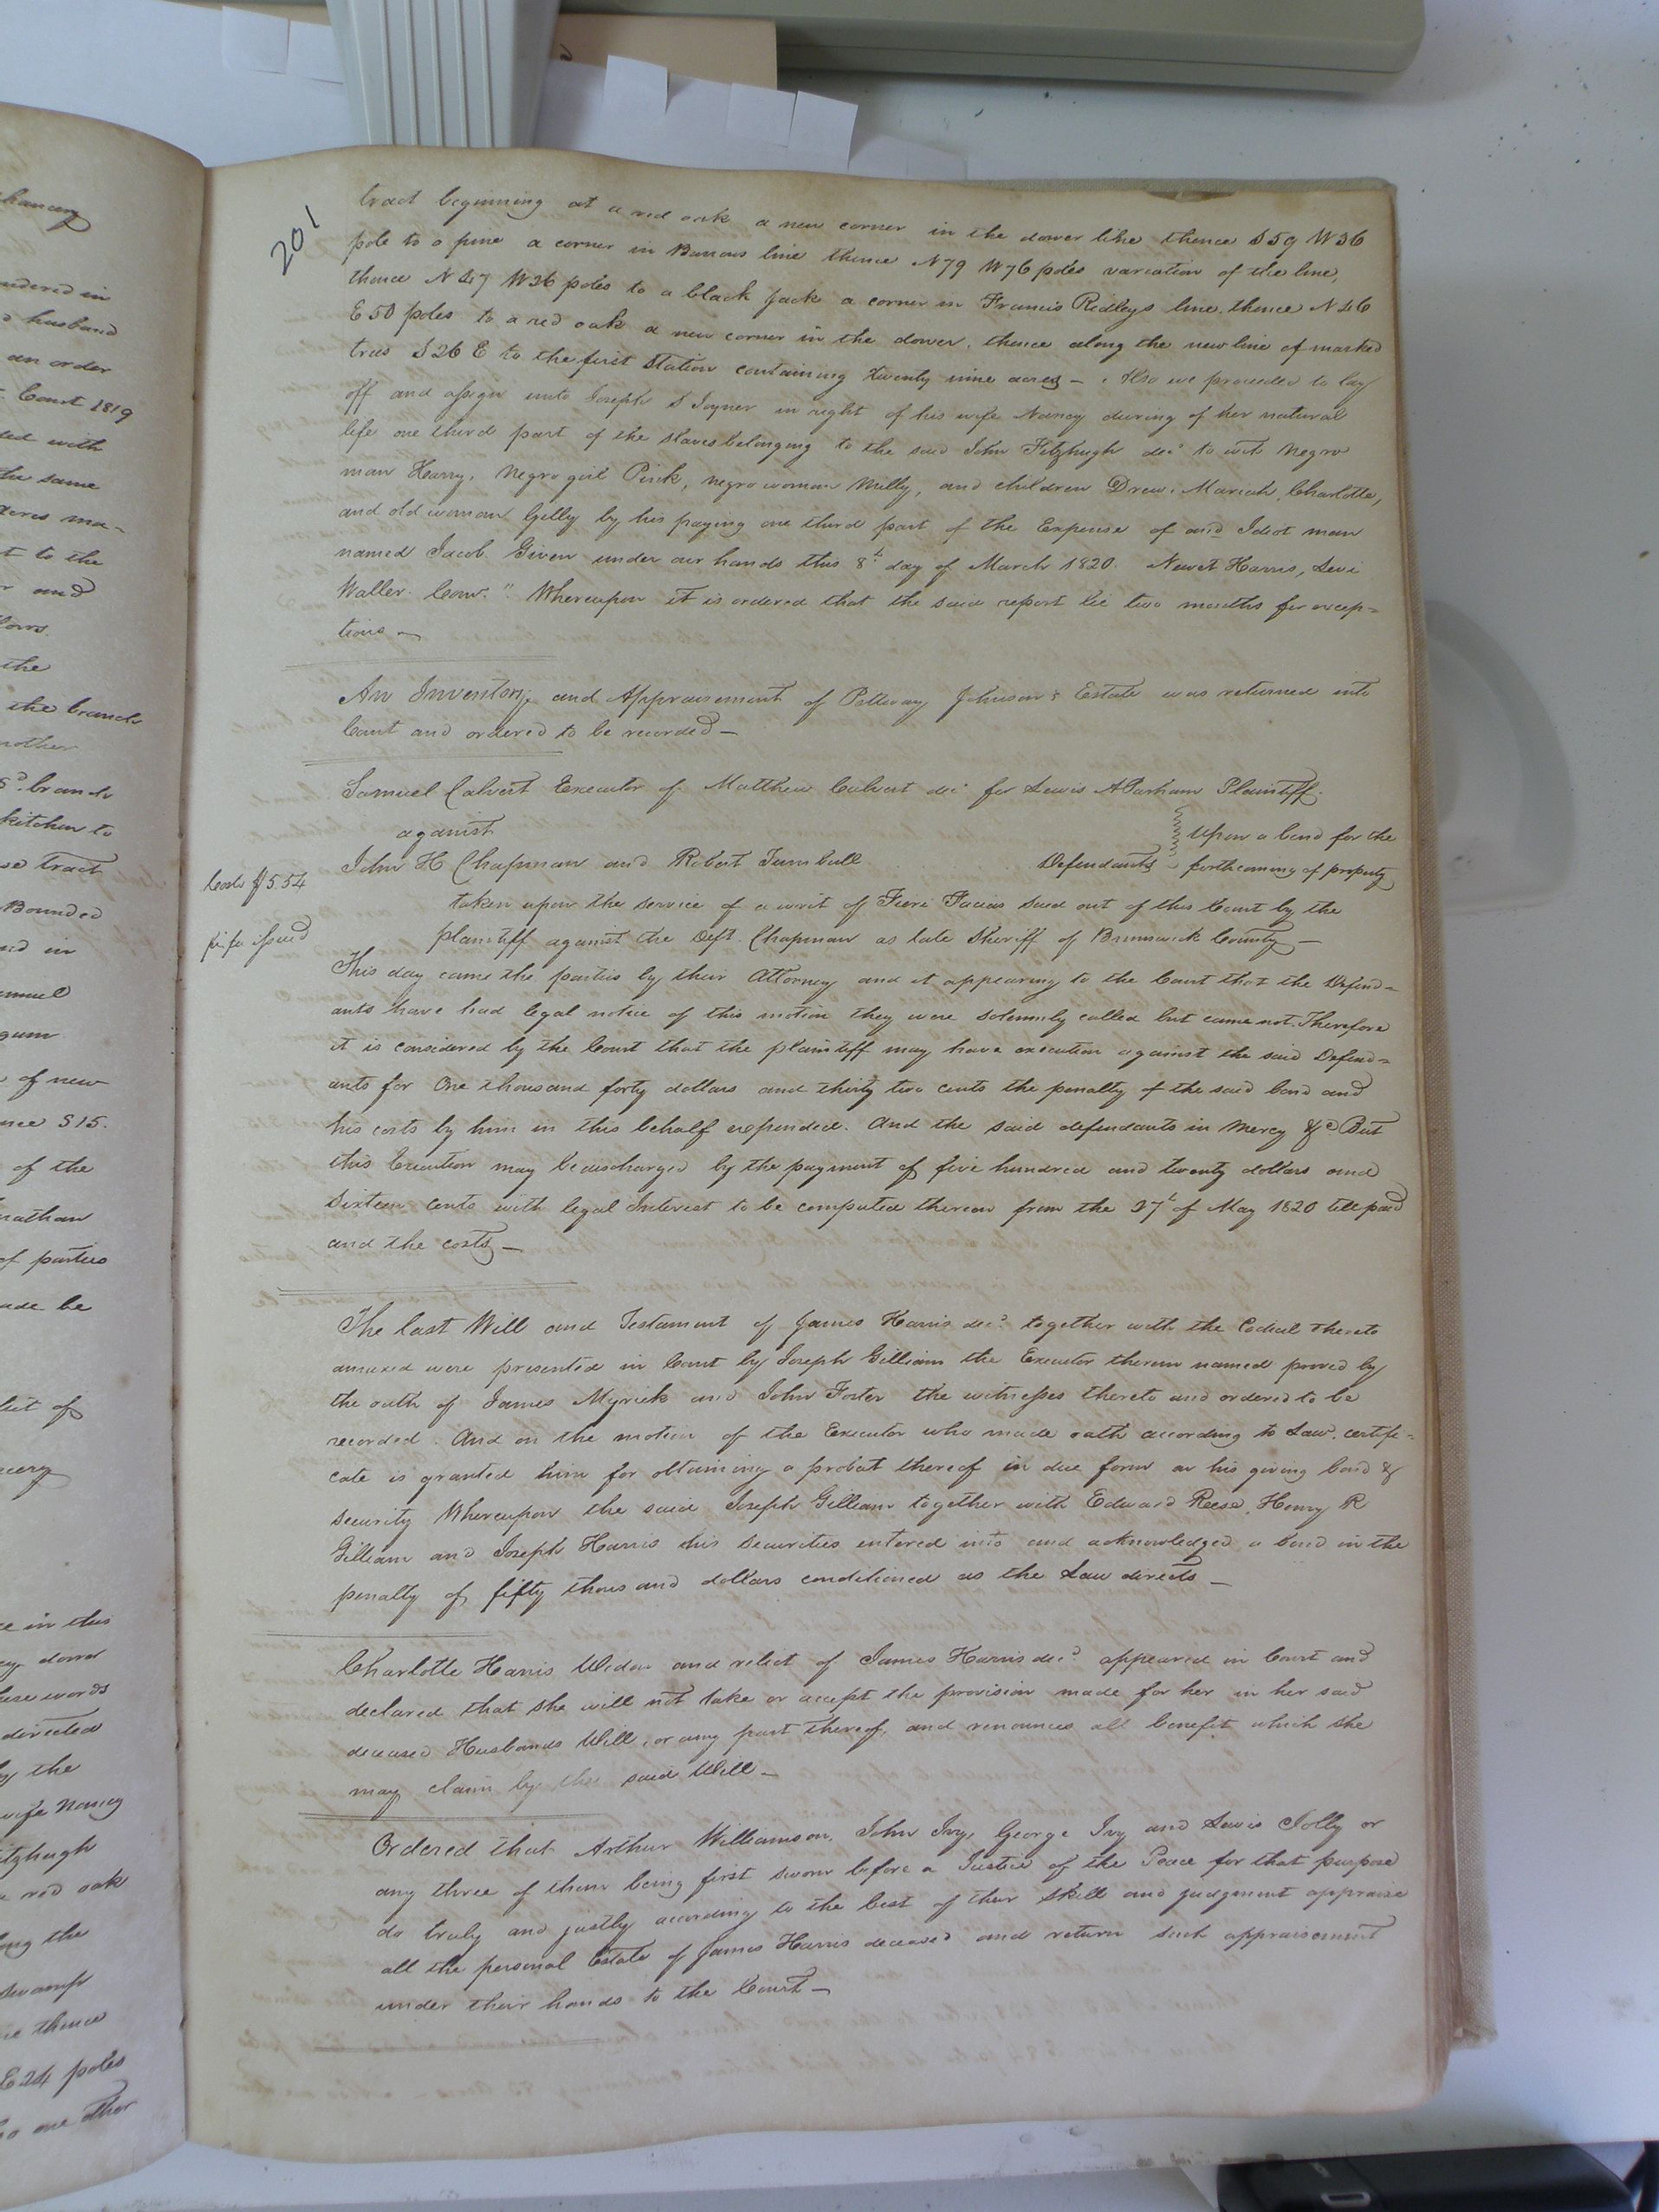 201
tract beginning at a red oak a new corner in the dower like thence S59 W36
pole to a pine a corner in Barrows line thence N79 W76 poles variation of the line,
thence N 47 W36 poles to a black Jack a corner in Francis Ridleys line. thence N46
E50 poles to a red oak a new corner in the dower, thence along the new line of marked
trees S26 E to the first Station containing twenty nine acres — Also we proceeded to lay
off and assign unto Joseph S Joyner in right of his wife Nancy during of her natural
life one third part of the slaves belonging to the said John Fitzhugh decd to wit Negro
man Harry, Negro girl Pink, negro woman Milly, and children Drew, Mariah, Charlotte,
and old woman Gilly by his paying one third part of the Expense of and Ideot man
named Jacob. Given under our hands this 8t day of March 1820. Newit Harris, Levi
Waller. Com." Whereupon it is ordered that the said report lie two months for excep=
tions —
An Inventory and Appraisement of Pettway Johnson's Estate was returned into
Court and ordered to be recorded —
Samuel Calvert Executor of Matthew Calvert decd for Lewis A Parham Plaintiff.
against
upon a bond for the
John H Chapman and Robert Turnbull Defendants forthcoming of property
Costs $5.54
taken upon the service of a writ of Fieri Facias sued out of this Court by the
fi fa issued
plaintiff against the Deft. Chapman as late Sheriff of Brunswick County —
This day came the parties by their Attorney and it appearing to the Court that the Defend=
ants have had legal notice of this motion they were solemnly called but came not. Therefore
it is considered by the Court that the plaintiff may have execution against the said Defend=
ants for One thousand forty dollars and thirty two cents the penalty of the said bond and
his costs by him in this behalf expended. And the said defendants in Mercy &c But
this Execution may be discharged by the payment of five hundred and twenty dollars and
sixteen cents with legal Interest to be computed thereon from the 27t of May 1820 till paid
and the costs —
The last Will and Testament of James Harris decd. together with the Codicil thereto
annexed were presented in Court by Joseph Gilliam the Executor therein named proved by
the oath of James Myrick and John Foster the witnesses thereto and ordered to be
recorded. And on the motion of the Executor who made oath according to Law, certifi=
cate is granted him for obtaining a probat thereof in due form on his giving bond &
security Whereupon the said Joseph Gilliam together with Edward Reese, Henry R
Gilliam and Joseph Harris his Securities entered into and acknowledged a bond in the
penalty of fifty thousand dollars conditioned as the Law directs —
Charlotte Harris Widow and relict of James Harris decd. appeared in Court and
declared that she will not take or accept the provision made for her in her said
deceased Husbands Will, or any part thereof, and renounces all benefit which she
may claim by the said Will —
Ordered that Arthur Williamson, John Ivy, George Ivy and Lewis Jolly or
any three of them being first sworn before a Justice of the Peace for that purpose
do truly and justly according to the best of their skill and judgment appraise
all the personal Estate of James Harris deceased and return such appraisement
under their hands to the Court —